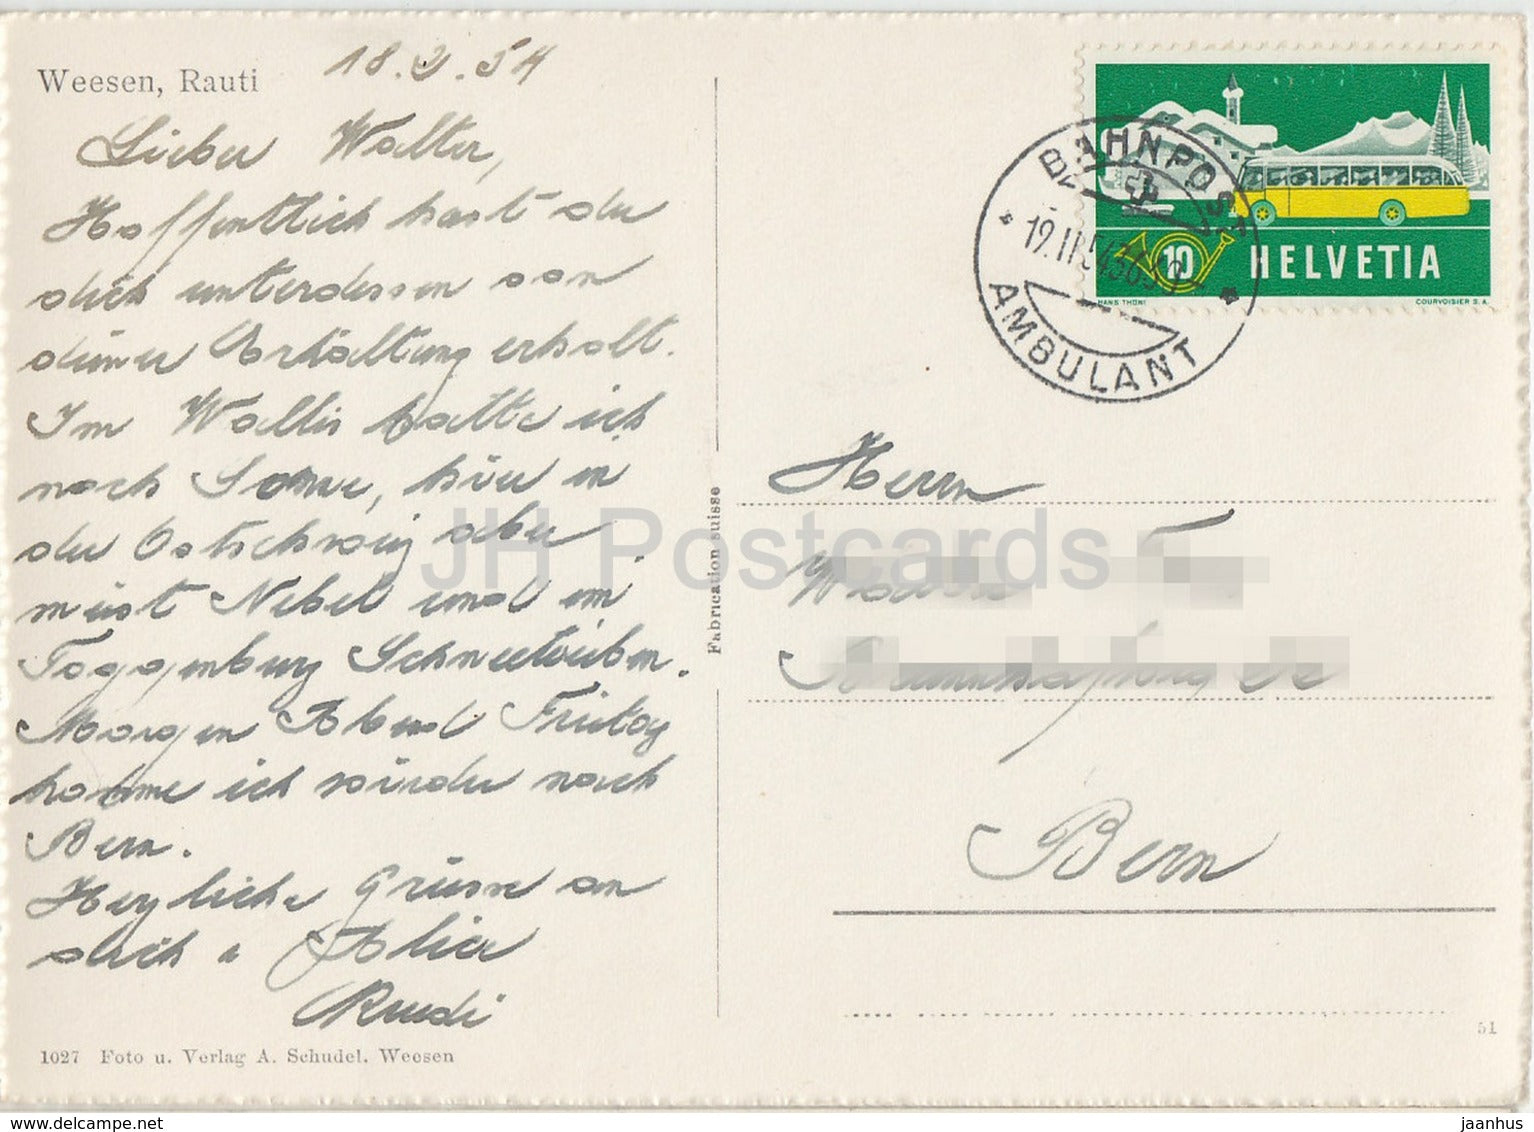 Weesen, Rauti
18.2.54
Lieber Walter,
Hoffentlich hast du
dich unterdessen von
deiner Erkältung erholt.
Im Wallis hatte ich
noch Sonne, hier in
der Ostschweiz aber
meist Nebel und im
Toggenburg Schneetreiben.
Morgen Abend Freitag
komme ich wieder nach
Bern.
Herzliche Grüsse an
dich u Alice
Ruedi
1027 Foto u. Verlag A. Schudel. Weesen
Fabrication suisse
BAHNPOST
19.II.54
AMBULANT
10 HELVETIA
HANS THÖNI COURVOISIER S.A.
Herrn
Bern
51
JH Postcards
www.delcampe.net
jaanhus